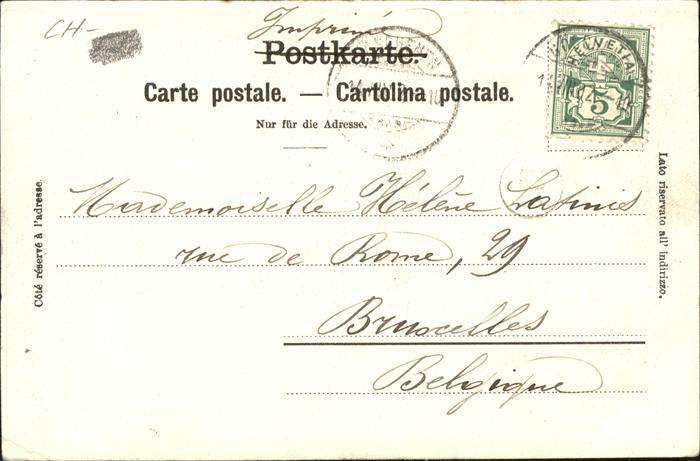 CH-
Imprimé
Postkarte.
HELVETIA
5
Carte postale. — Cartolina postale.
Nur für die Adresse.
Côté réservé à l'adresse.
Lato riservato all' indirizzo.
Mademoiselle Hélène Latinis
rue de Rome, 29
Bruxelles
Belgique